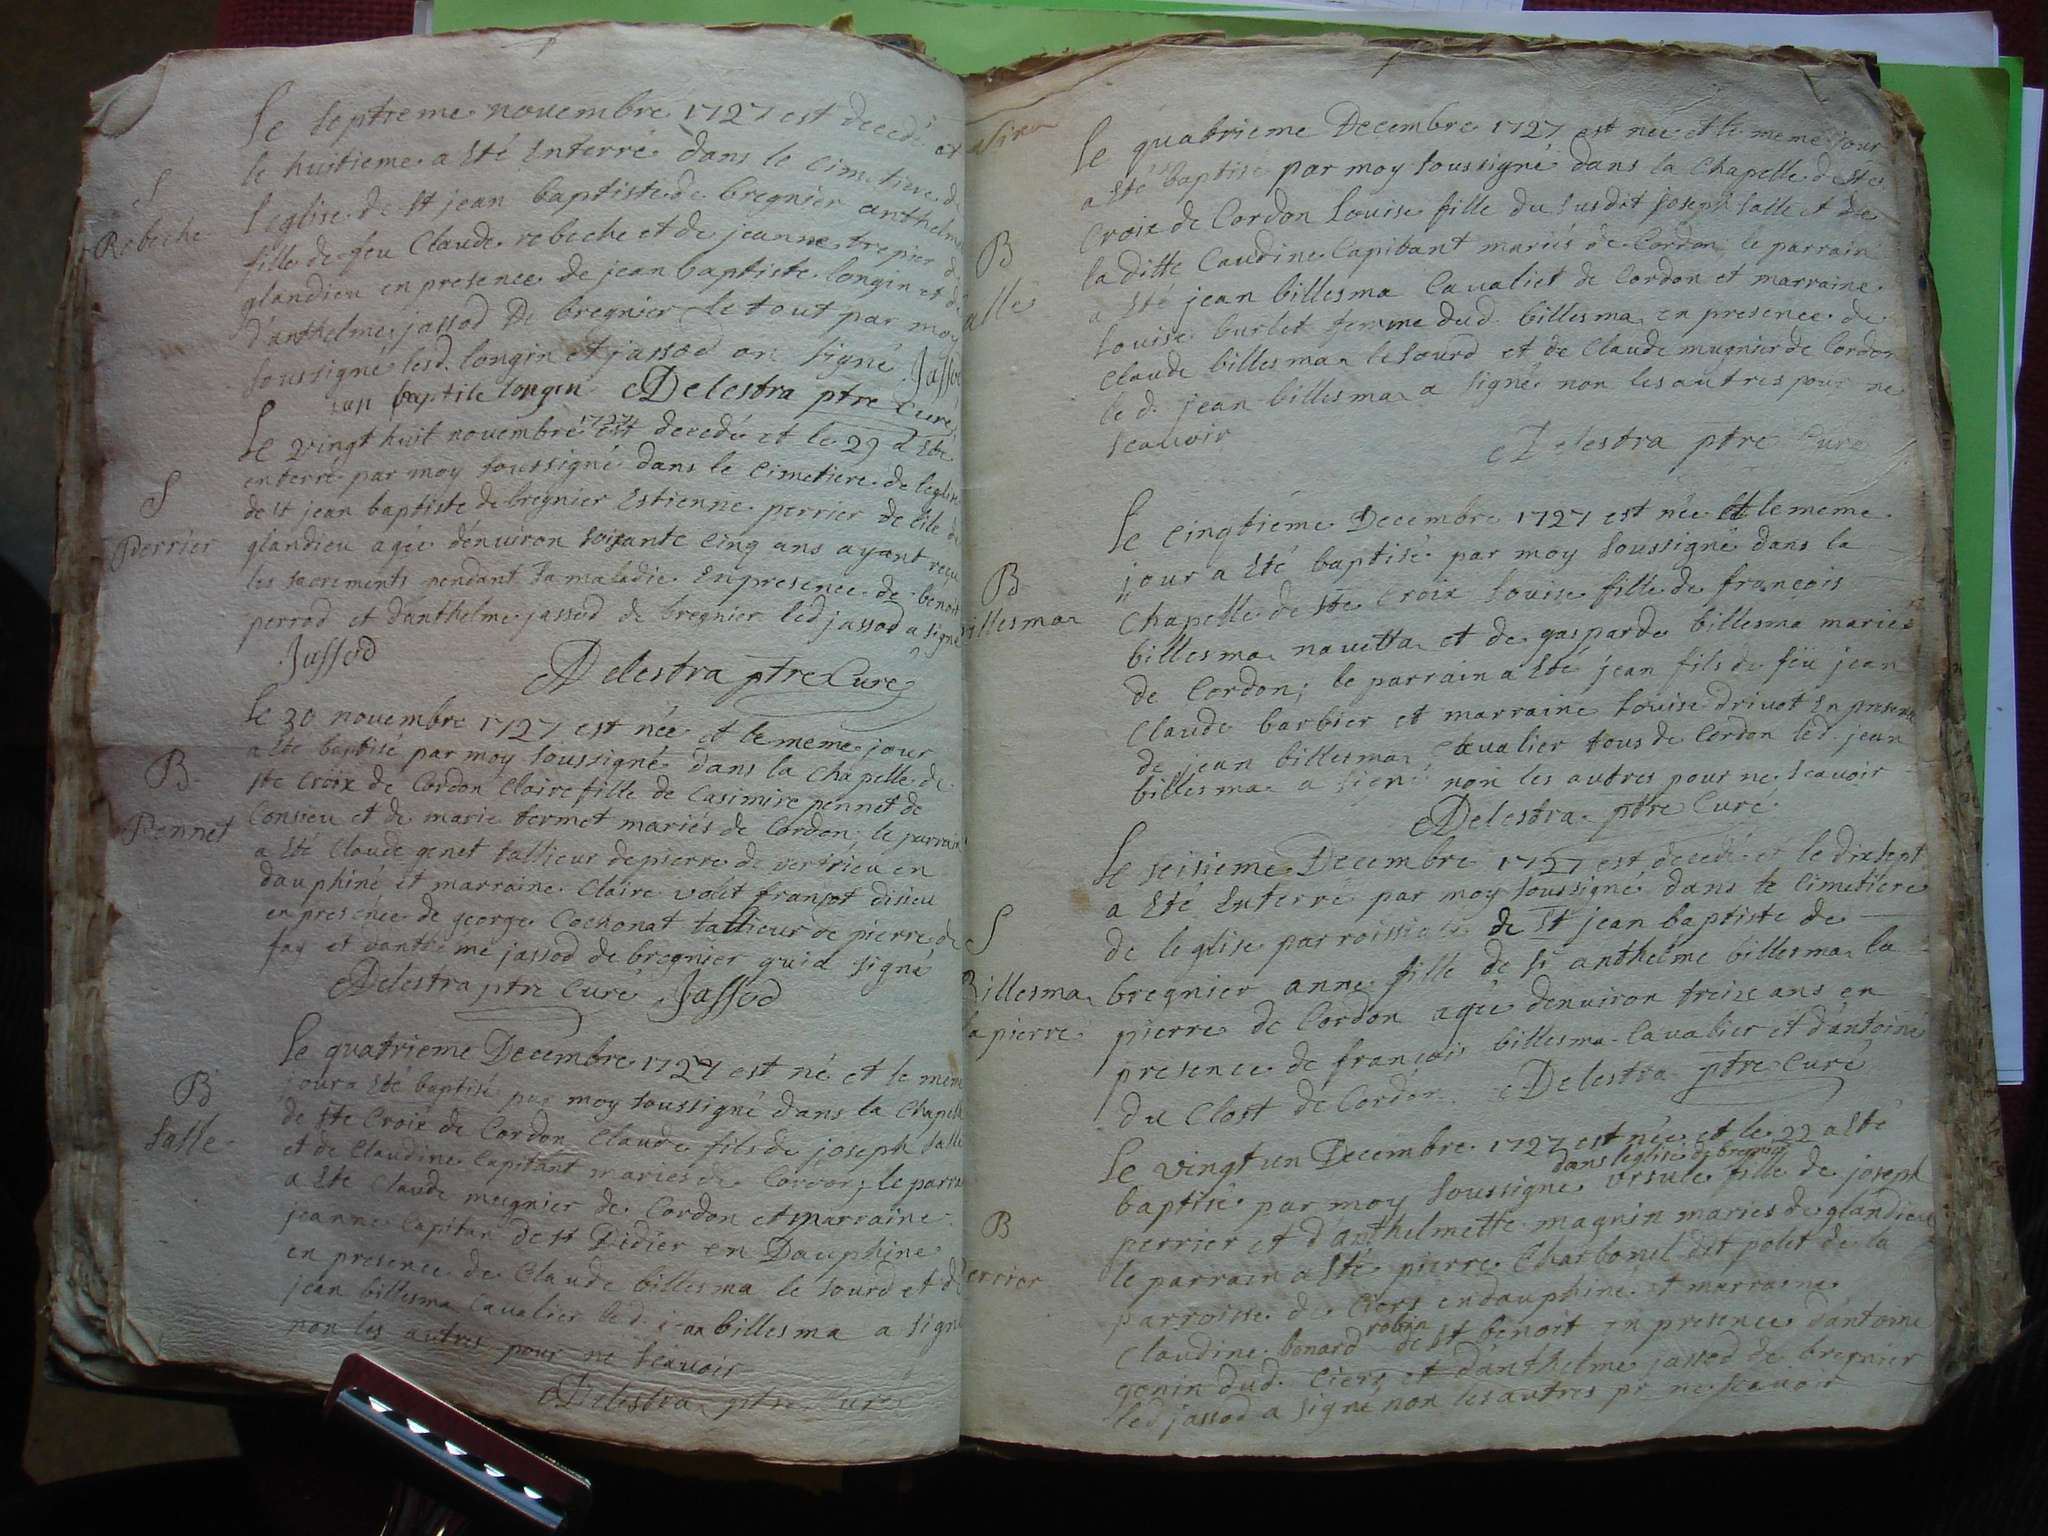 Le septieme novembre 1727 est decedé et
le huitieme a Eté Enterré dans le cimetiere de
S
Rebeche
l'eglise de st jean baptiste de bregnier anthelme
fille de feu Claude rebeche et de jeanne trepier de
glandieu en presence de jean baptiste longin et de
d'anthelme jassod de bregnier le tout par moy
soussigné lesd. longin et jassod on signé Jassod
jan baptite longin Delestra ptre Curé
Le vingt huit novembre 1727 est decedé et le 29 a Eté
enterré par moy soussigné dans le Cimetiere de l'eglise
S
Perrier
de st jean baptiste de bregnier Estienne perrier de l'ile de
glandieu agée d'enuiron soisante Cinq ans ayant reçu
les sacrements pendant sa maladie En presence de benoit
perrod et d'anthelme jassod de bregnier led jassod a signé
Jassod
Delestra ptre Curé
Le 30 novembre 1727 est née et le meme jour
a Eté baptisé par moy soussigné dans la Chapelle de
B
Pennet
ste Croix de Cordon Claire fille de Casimire pennet de
Consieu et de marie termet mariés de Cordon; le parrain
a Eté Claude genet tallieur de pierre de vertrieu en
dauphiné et marraine Claire volit franjot disieu
en presence de george Cochonat tallieur de pierre de
fay et d'anthelme jassod de bregnier qui a signé
Delestra ptre Curé Jassod
Le quatrieme Decembre 1727 est né et le meme
B
Salle
jour a Eté baptisé par moy soussigné dans la Chapelle
de ste Croix de Cordon Claude fils de joseph Salle
et de Claudine Capitant mariés de Cordon; le parrain
a Eté Claude meugnier de Cordon et marraine
jeanne Capitan de st Didier en Dauphine
en presence de Claude billesma le sourd et de
jean billesma Cavalier led. jean billesma a signé
non les autres pour ne scavoir
Delestra ptre Curé
Le quatrieme Decembre 1727 est née et le meme jour
a Eté baptisé par moy soussigné dans la Chapelle de ste
B
alle
Croix de Cordon Louise fille du susdit joseph Salle et de
laditte Caudine Capitant mariés de Cordon; le parrain
a Eté jean billesma Cavaliet de Cordon et marraine
Louise burlet femme dud. billesma en presence de
Claude billesma le sourd et de Claude mugnier de Cordon
le d. jean billesma a signé non les autres pour ne
scavoir
Delestra ptre Curé
Le Cinqtiéme Decembre 1727 est née Et le meme
B
illesma
jour a Eté baptisé par moy soussigné dans la
Chapelle de ste Croix Louise fille de françois
billesma navetta et de gasparde billesma mariés
de Cordon; le parrain a Eté jean fils de feu jean
Claude barbier et marraine Louise drivot En presence
de jean billesma Cavalier tous de Cordon led. jean
billesma a signé non les autres pour ne scavoir
Delestra ptre Curé
Le seisieme Decembre 1727 est decedé et le dixsept
a Eté Enterré par moy soussigné dans le Cimetiere
S
Billesma
la pierre
de leglise parroissiale de St jean baptiste de
bregnier anne fille de Sr anthelme billesma la
pierre de Cordon agée d'enuiron treize ans en
presence de françois billesma Cavalier et d'antoine
du Clost de Cordon. Delestra ptre Curé
Le vingt un Decembre 1727 est née et le 22 a Eté
dans l'eglise de bregnier
baptisé par moy soussigné ursule fille de joseph
B
errier
perrier et d'anthelmette magnin mariés de glandieu
le parrain a Eté pierre Charbonel dit polet de la
parroisse de Ciers en dauphine et marraine
robin
Claudine bonard de st benoit en presence d'antoine
genin dud. Ciers et d'anthelme jassod de bregnier
led jassod a signé non les autres pr ne scavoir